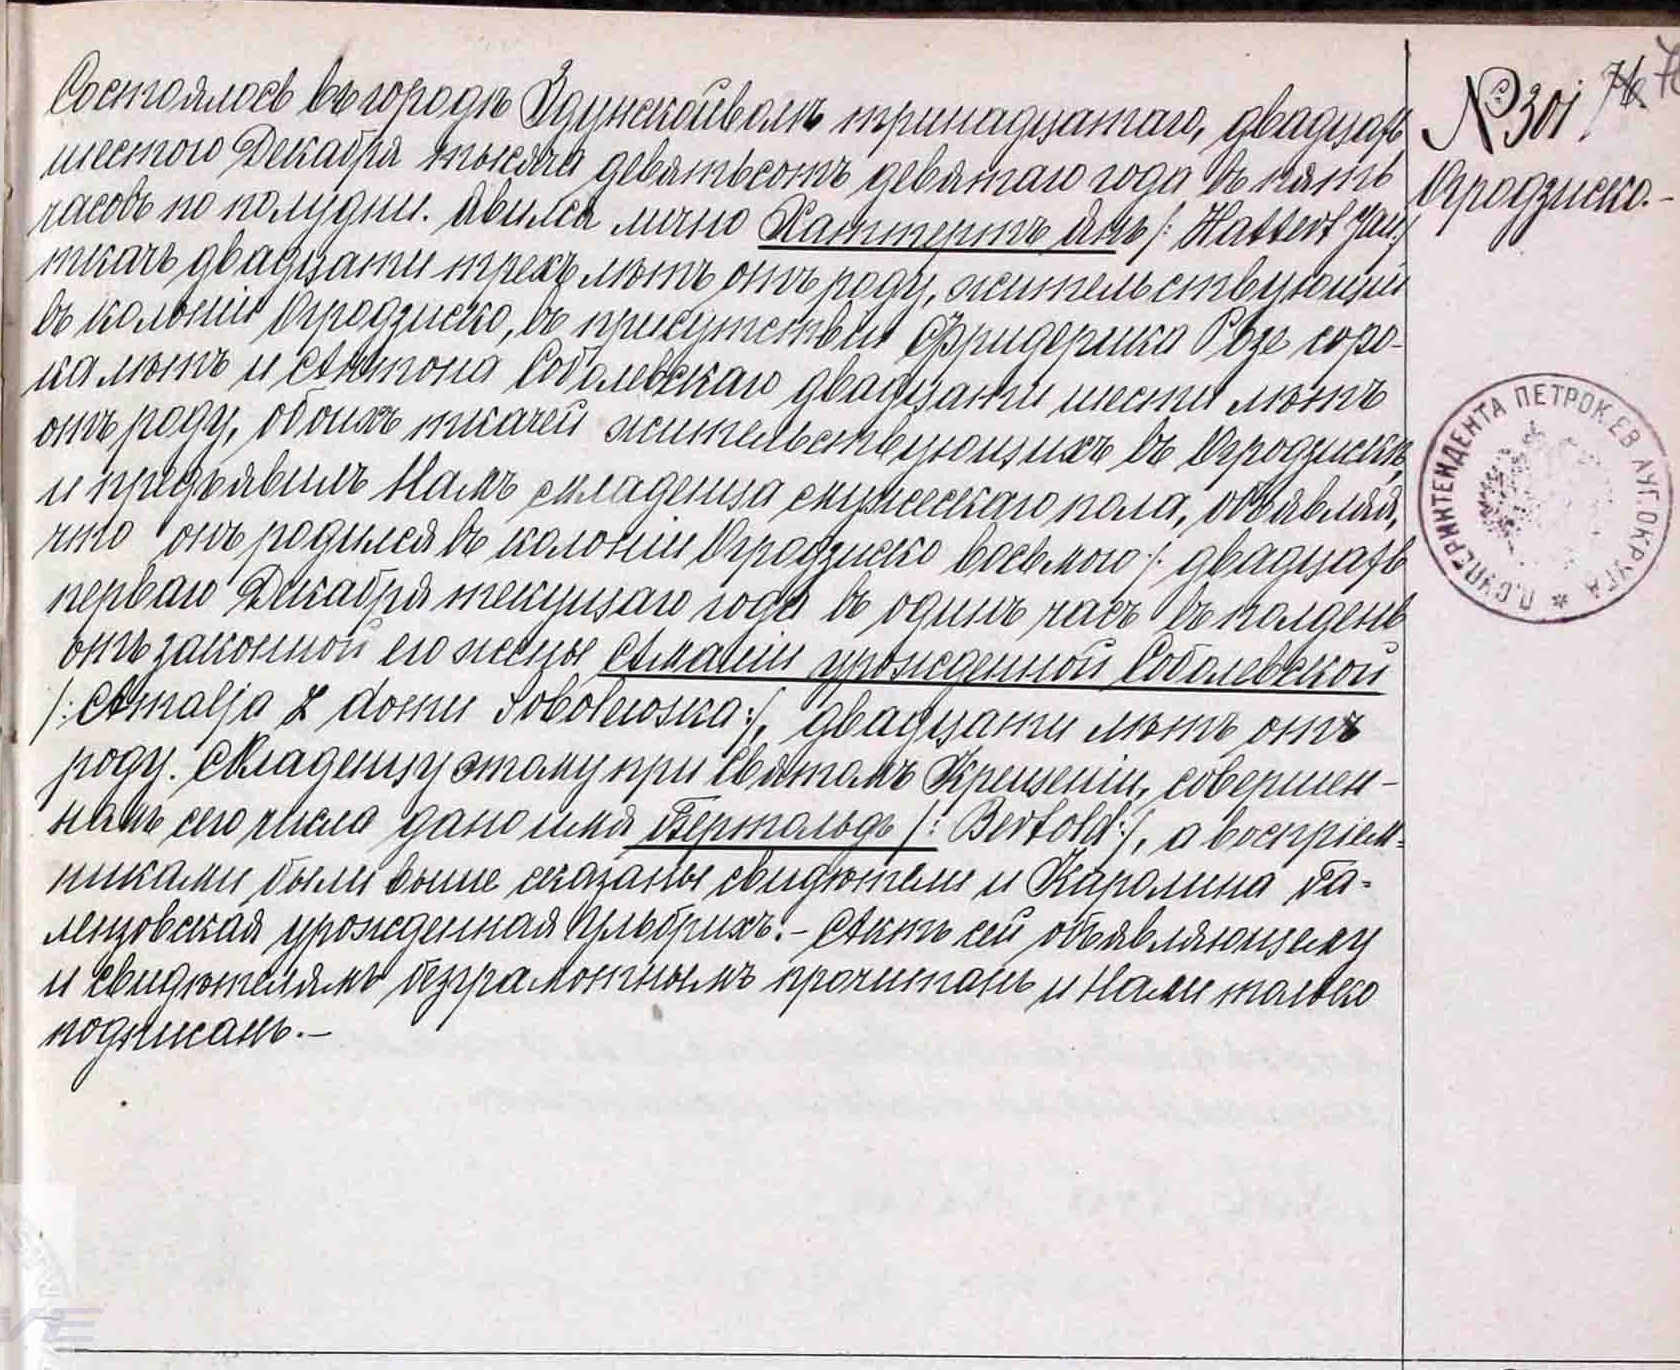 Состоялось въ городѣ Здунскойволѣ тринадцатаго, двадцать
шестого Декабря тысяча девятьсотъ девятаго года въ пять
часовъ по полудни. Явился лично Хаттертъ Янъ /: Hattert Jan :/
ткачъ двадцати трехъ лѣтъ отъ роду, жительствующій
въ колоніи Огродзиско, въ присутствіи Фридерика Розе соро-
ка лѣтъ и Антона Соболевскаго двадцати шести лѣтъ
отъ роду, обоихъ ткачей жительствующихъ въ Огродзискѣ,
и предъявилъ Намъ младенца мужескаго пола, объявляя,
что онъ родился въ колоніи Огродзиско восьмого / двадцать
перваго Декабря текущаго года въ одинъ часъ въ полдень
отъ законной его жены Амаліи урожденной Соболевской
/: Amalja z domu Sobolewska :/, двадцати лѣтъ отъ
роду. Младенцу этому при Святомъ Крещеніи, совершен-
номъ сего числа дано имя Бертольдъ /: Bertold :/, а воспріем-
никами были выше сказаны свидѣтели и Каролина Га-
ленцовская урожденная Ульбрихъ. - Актъ сей объявляющему
и свидѣтелямъ безграмотнымъ прочитанъ и Нами только
подписанъ. -
№ 301 / 76
Огродзиско. -
П. СУПЕРИНТЕНДЕНТА ПЕТРОК. ЕВ. АУГ. ОКРУГА *